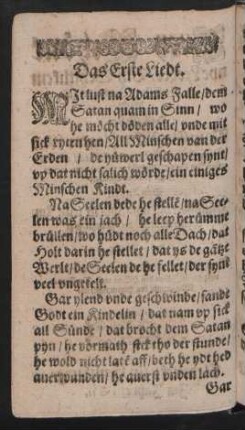 Das Erste Liedt.
MIt lust na Adams Falle / dem
Satan quam in Sinn / wo
he möcht döden alle / vnde mit
sick ryten hen / All Minschen van der
Erden / de yüwerl geschapen synt /
vp dat nicht salich wörde / ein einiges
Minschen Kindt.
Na Seelen dede he stellē / na See-
len was ein jach / he leep herümme
brüllen / wo hüdt noch alle Dach / dat
Holt darin he stellet / dat ys de gätze
Werlt / de Seelen de he fellet / der synt
veel vngetelt.
Gar ylend vnde geschwinde / sandt
Godt ein Kindelin / dat nam vp sick
all Sünde / dat brocht dem Satan
pyn / he vörmath sick tho der stunde /
he wold nicht latē aff / beth he ydt hed
auerwunden / he auerst vnden lach.
Gar